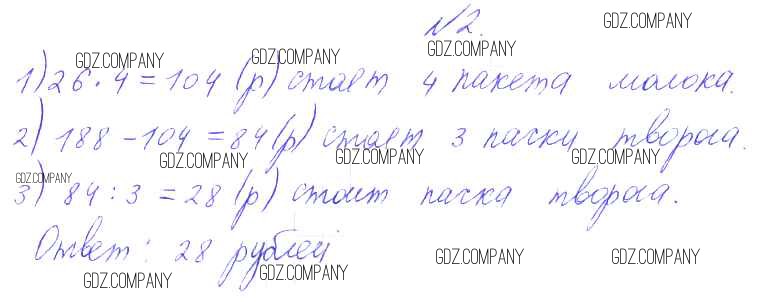 №2.
1) 26 · 4 = 104 (р) стоят 4 пакета молока.
2) 188 - 104 = 84 (р) стоят 3 пачки творога.
3) 84 : 3 = 28 (р) стоит пачка творога.
Ответ: 28 рублей
GDZ.COMPANY
GDZ.COMPANY
GDZ.COMPANY
GDZ.COMPANY
GDZ.COMPANY
GDZ.COMPANY
GDZ.COMPANY
GDZ.COMPANY
GDZ.COMPANY
GDZ.COMPANY
GDZ.COMPANY
GDZ.COMPANY